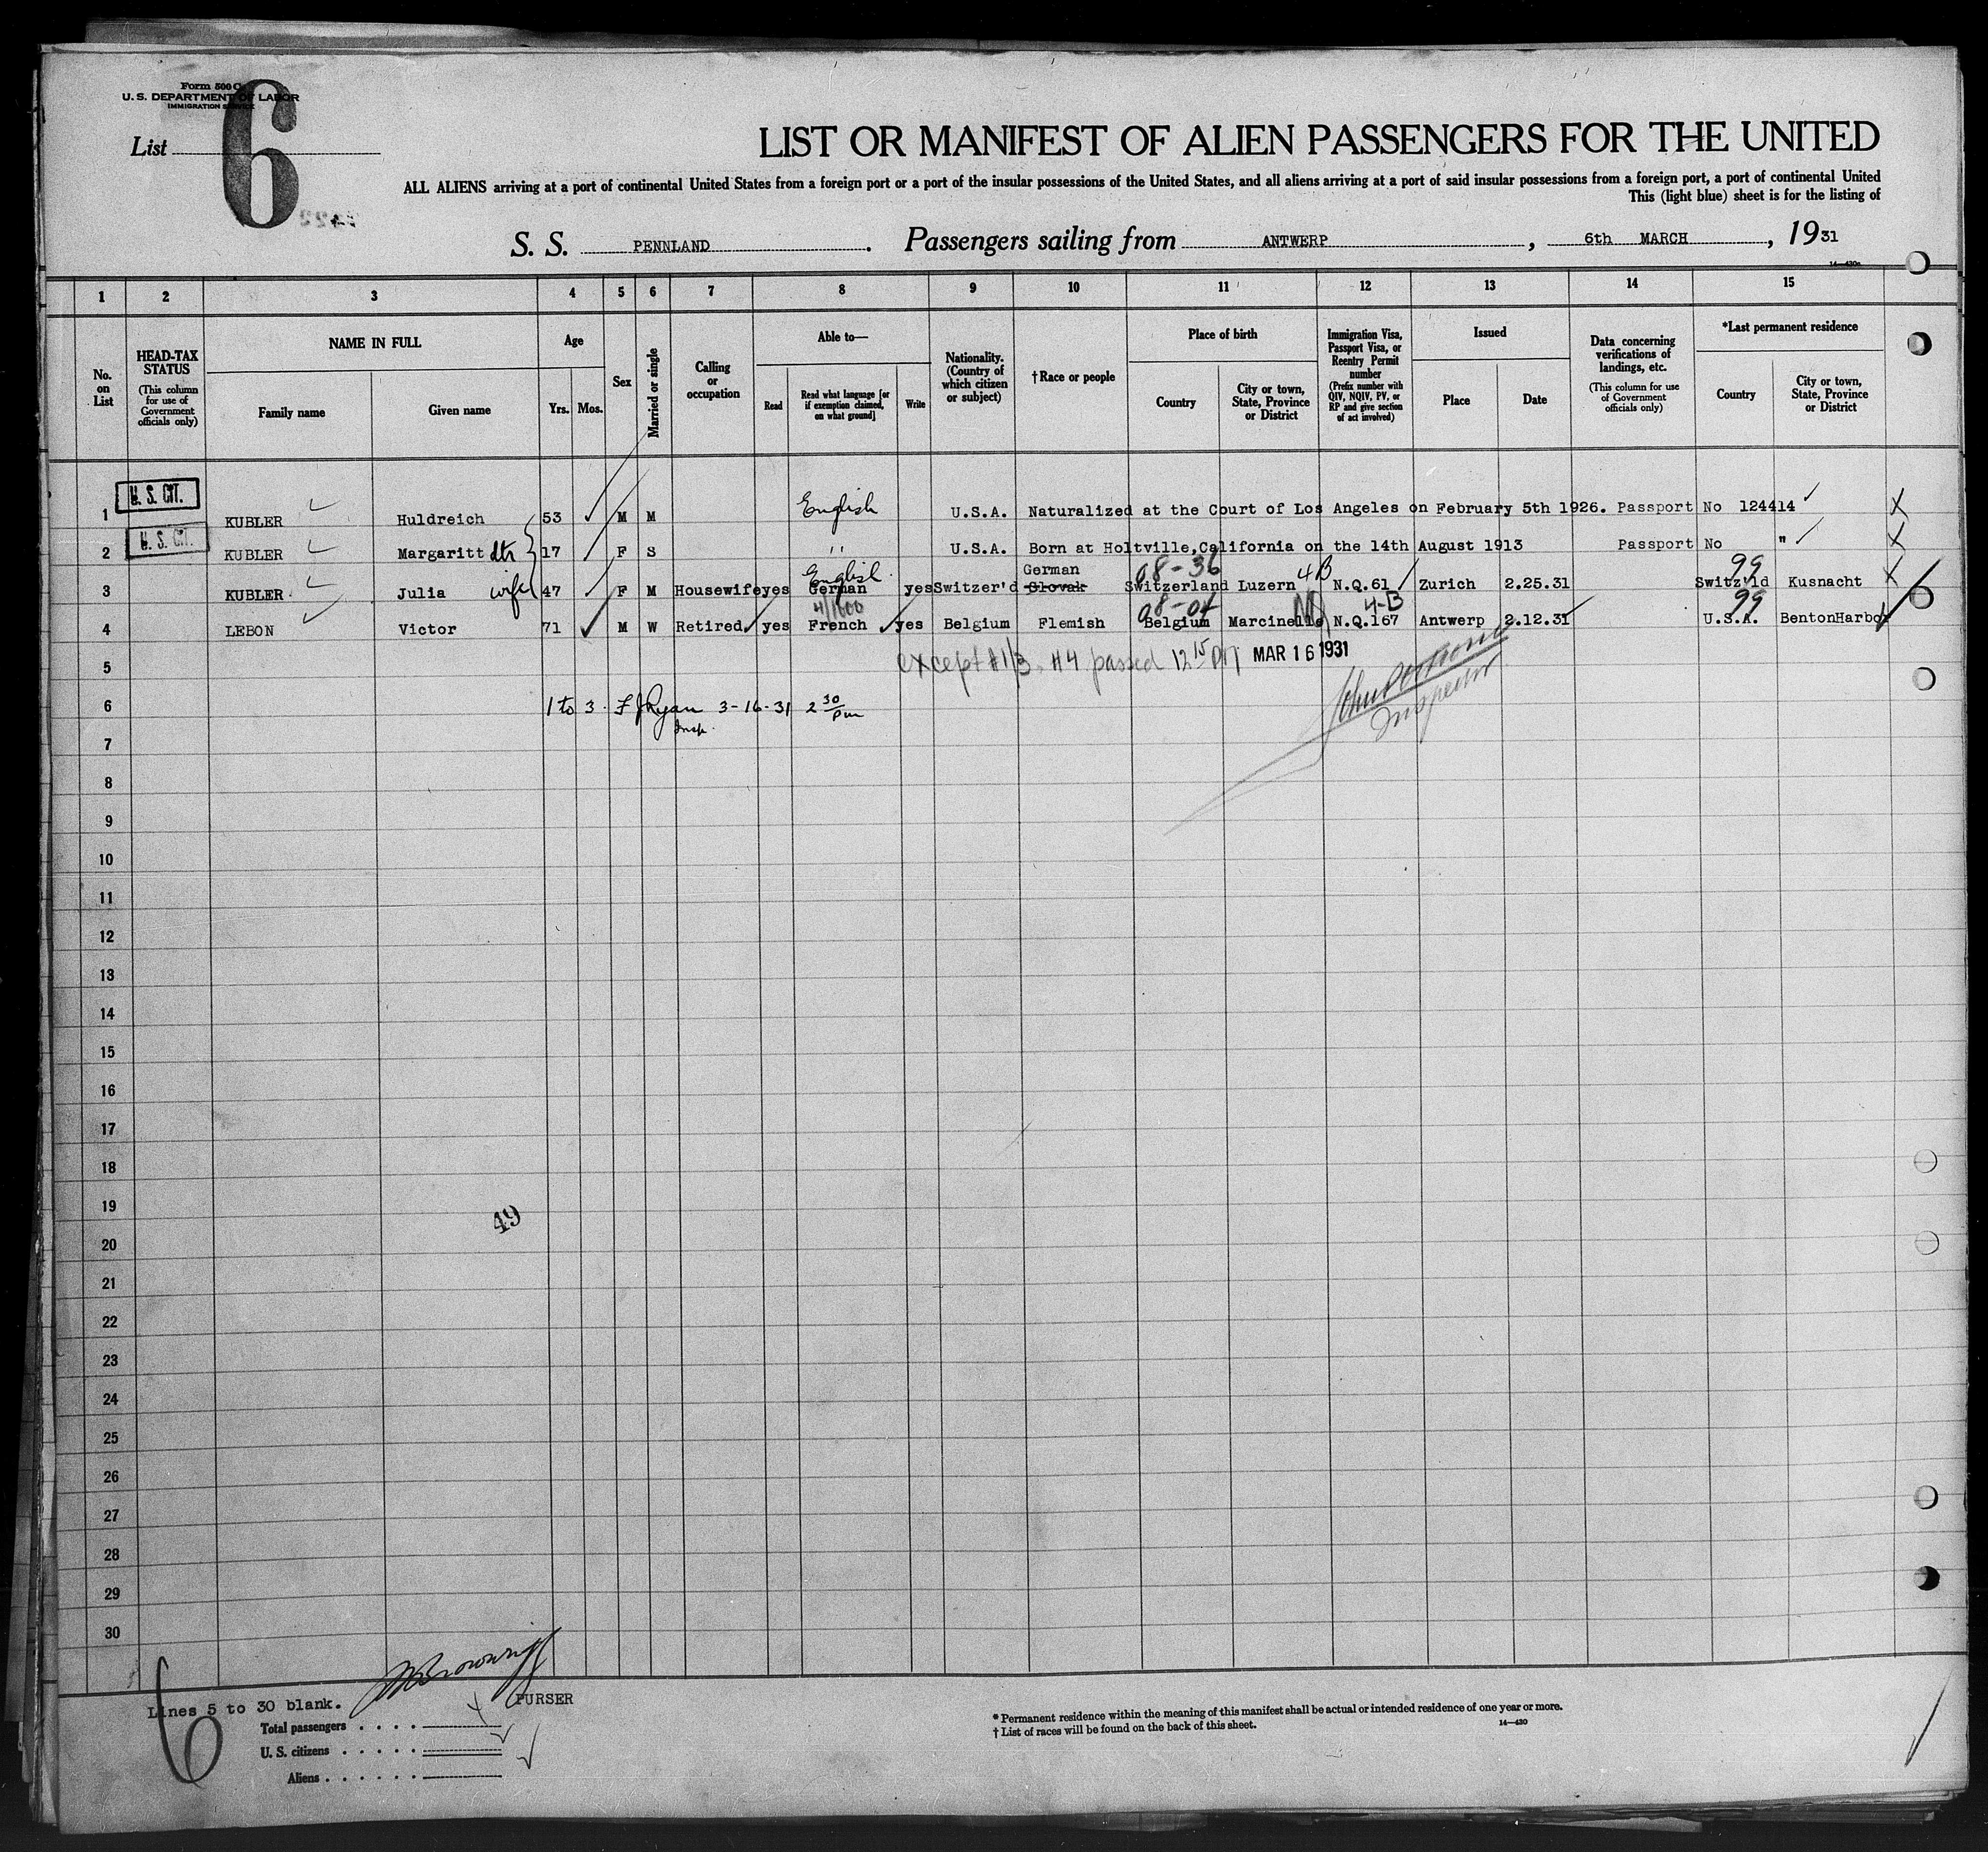 Form 500 C
U. S. DEPARTMENT OF LABOR
IMMIGRATION SERVICE
List 6
LIST OR MANIFEST OF ALIEN PASSENGERS FOR THE UNITED
ALL ALIENS arriving at a port of continental United States from a foreign port or a port of the insular possessions of the United States, and all aliens arriving at a port of said insular possessions from a foreign port, a port of continental United
This (light blue) sheet is for the listing of
S. S. PENNLAND. Passengers sailing from ANTWERP, 6th MARCH, 1931
14—430a
1 2 3 4 5 6 7 8 9 10 11 12 13 14 15
No. on List
HEAD-TAX STATUS (This column for use of Government officials only)
NAME IN FULL
Family name
Given name
Age
Yrs.
Mos.
Sex
Married or single
Calling or occupation
Able to—
Read
Read what language [or if exemption claimed, on what ground]
Write
Nationality. (Country of which citizen or subject)
†Race or people
Place of birth
Country
City or town, State, Province or District
Immigration Visa, Passport Visa, or Reentry Permit number (Prefix number with QIV, NQIV, PV, or RP and give section of act involved)
Issued
Place
Date
Data concerning verifications of landings, etc. (This column for use of Government officials only)
*Last permanent residence
Country
City or town, State, Province or District
1 U. S. CIT. KUBLER Huldreich 53 M M English U.S.A. Naturalized at the Court of Los Angeles on February 5th 1926. Passport No 124414
2 U. S. CIT. KUBLER Margaritt dtr 17 F S " U.S.A. Born at Holtville, California on the 14th August 1913 Passport No "
English German 08-36 4B 99
3 KUBLER Julia wife 47 F M Housewife yes German yes Switzer'd Slovak Switzerland Luzern N.Q.61 Zurich 2.25.31 Switz'ld Kusnacht
08-04 4-B 99
4 LEBON Victor 71 M W Retired yes French yes Belgium Flemish Belgium Marcinelle N.Q.167 Antwerp 2.12.31 U.S.A. BentonHarbor
5 except #1/3, #4 passed 12 15 PM MAR 16 1931
6 1 to 3 F J Ryan Insp. 3-16-31 2 30 pm
Inspector
7
8
9
10
11
12
13
14
15
16
17
18
19
49
20
21
22
23
24
25
26
27
28
29
30
6
Lines 5 to 30 blank.
PURSER
Total passengers . . . .
U. S. citizens . . . . .
Aliens . . . . . .
* Permanent residence within the meaning of this manifest shall be actual or intended residence of one year or more.
† List of races will be found on the back of this sheet.
14—430